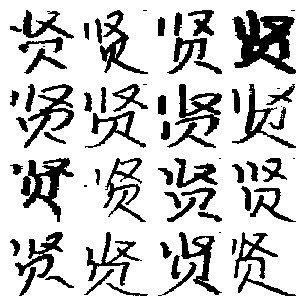 贤贤贤贤
贤贤贤贤
贤贤贤贤
贤贤贤贤